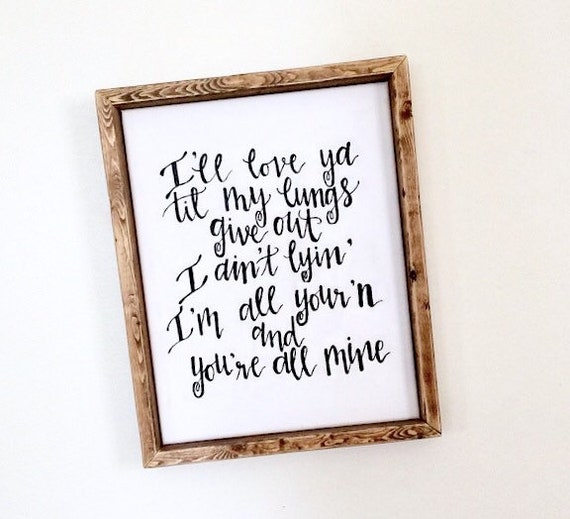 I'll love ya
til my lungs
give out
I ain't lyin'
I'm all your'n
and
you're all mine